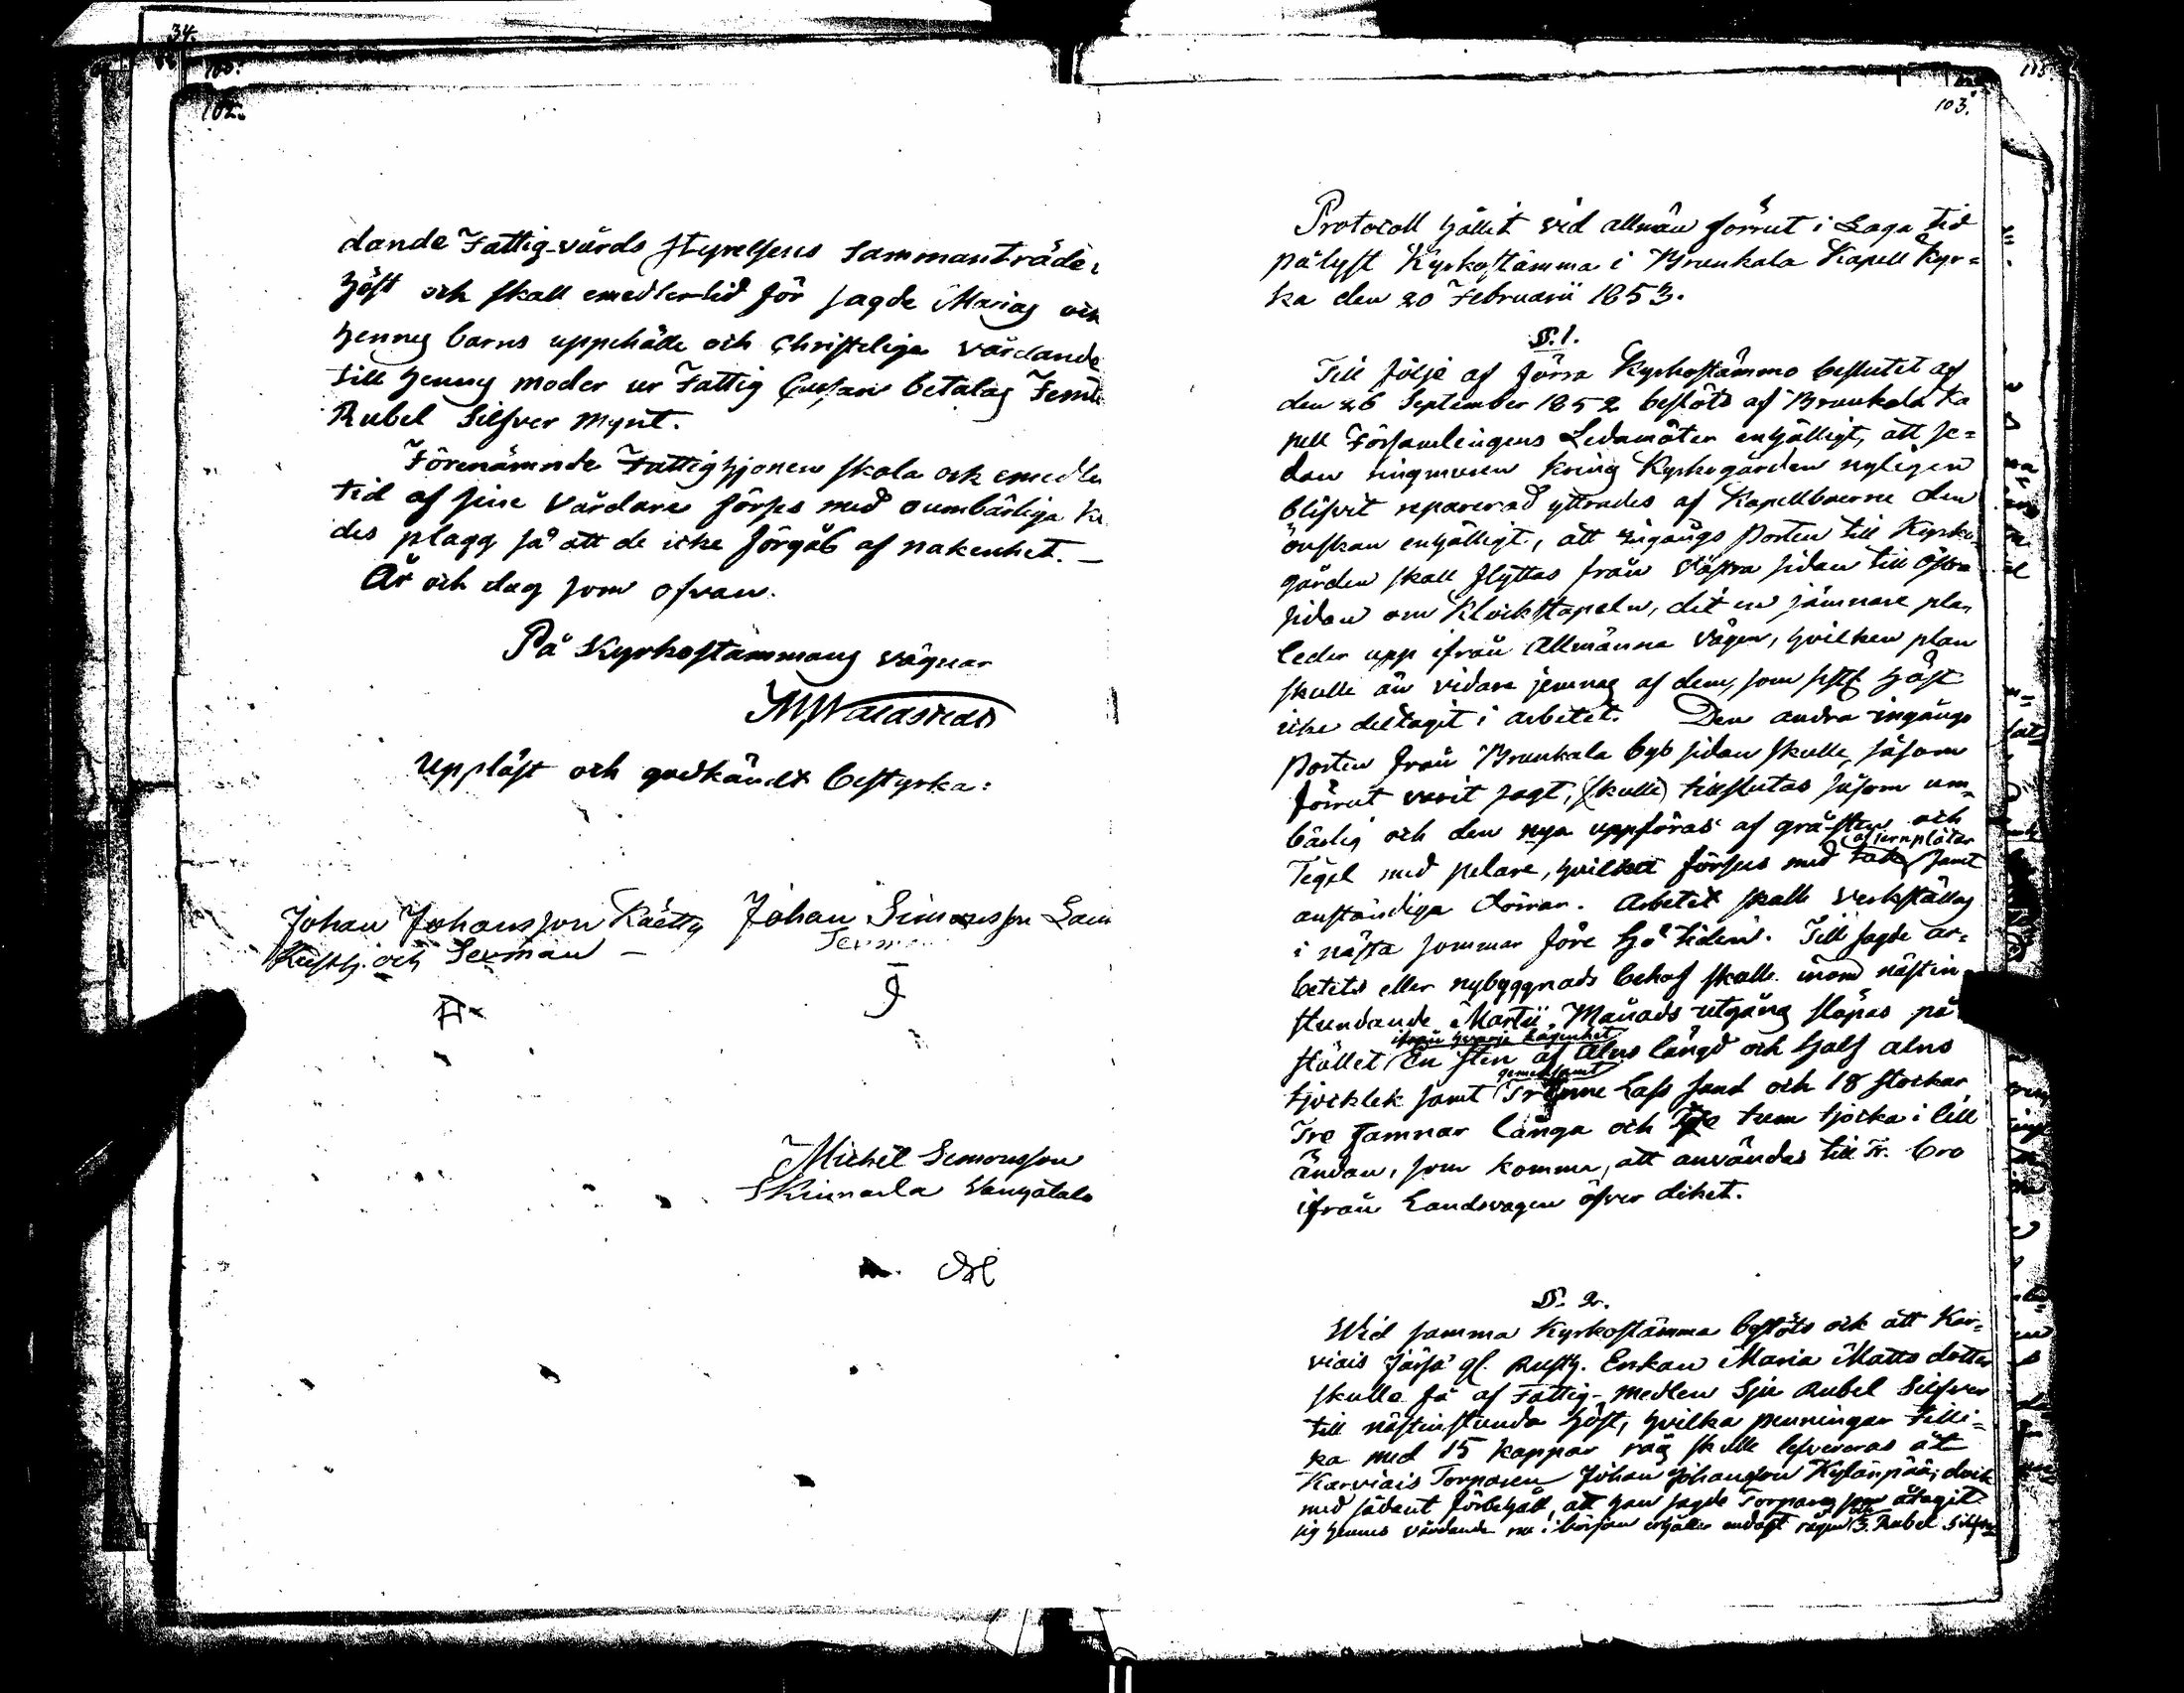 34.
100.
102.
dande Fattig-vårds styrelsens sammanträde i
höst och skall emedlertid för sagde Marias och
hennes barns uppehälle och Christeliga vårdande
till hennes moder ur Fattig Cassan betalas Femt
Rubel Silfver Mynt.
Förenämnde Fattighjonen skola ock emedler
tid af sine Vårdare förses med oumbärliga klä
des plagg så att de icke förgås af nakenhet. —
År och dag som ofvan.
På Kyrkostämmans vägnar
Uppläst och godkändt bestyrka:
Johan Johansson Räetty
Rusth. och Sexman —
Johan Simonsson
Sexman
Michel Simonsson
103.
Protocoll hållit vid allmän förrut i Laga tid
pålyst Kyrkostämma i Brunkala Kapell Kyr=
ka den 20 Februarii 1853.
§. 1.
Till följe af förra Kyrkostämmo beslutet af
den 26 September 1852 beslöts af Brunkala Ka
pell Församlingens Ledamöter enhälligt, att se=
dan ringmuren kring Kyrkogården nyligen
blifvit reparerad yttrades af Kapellboerne den
önskan enhälligt, att ingångs Porten till Kyrko=
gården skall flyttas från Västra sidan till Östra
sidan om Klockstapeln, dit en jämnare plan
leder upp ifrån Allmänna Vägen, hvilken plan
skulle än vidare jemnas af dem, som sistl. höst
icke deltagit i arbetet. Den andra ingångs
Porten från Brunkala bys sidan skulle, såsom
förrut varit sagt, (skulle) tillslutas såsom um=
bärlig och den nya uppföras af grå-sten och
af jernplåtar
Tegel med pelare, hvilket förses med tak samt
anständiga dörrar. Arbetet skall verkställas
i nästa sommar före hö tiden. Till sagde ar=
betets eller nybyggnads behof skulle inom nästin=
stundande Martii Månads utgång släpas på
ifrån hvarje lägenhet
stället En sten af Alns längd och half alns
gemensamt
tjocklek samt Trenne Lass sand och 18 stockar
Tre famnar långa och tum tjocka i lill
ändan, som komma, att användas till Tr. bro
ifrån Landsvägen öfver diket.
§. 2.
Wid samma Kyrkostämma beslöts ock att Kar=
viais Järfä gl. Rusth. Enkan Maria Matts dotter
skulle få af Fattig-medlen Sju Rubel Silfver
till nästinstunda höst, hvilka penningar tilli=
ka med 15 kappar råg skulle lefvereras åt
Karviais Torparen Johan Johansson Kylänpää, dock
med sådant förbehåll, att han sagde Torparen som åtagit
sig hennes vårdande nu i början erhåller endast rågen 3. Rubel Silfver